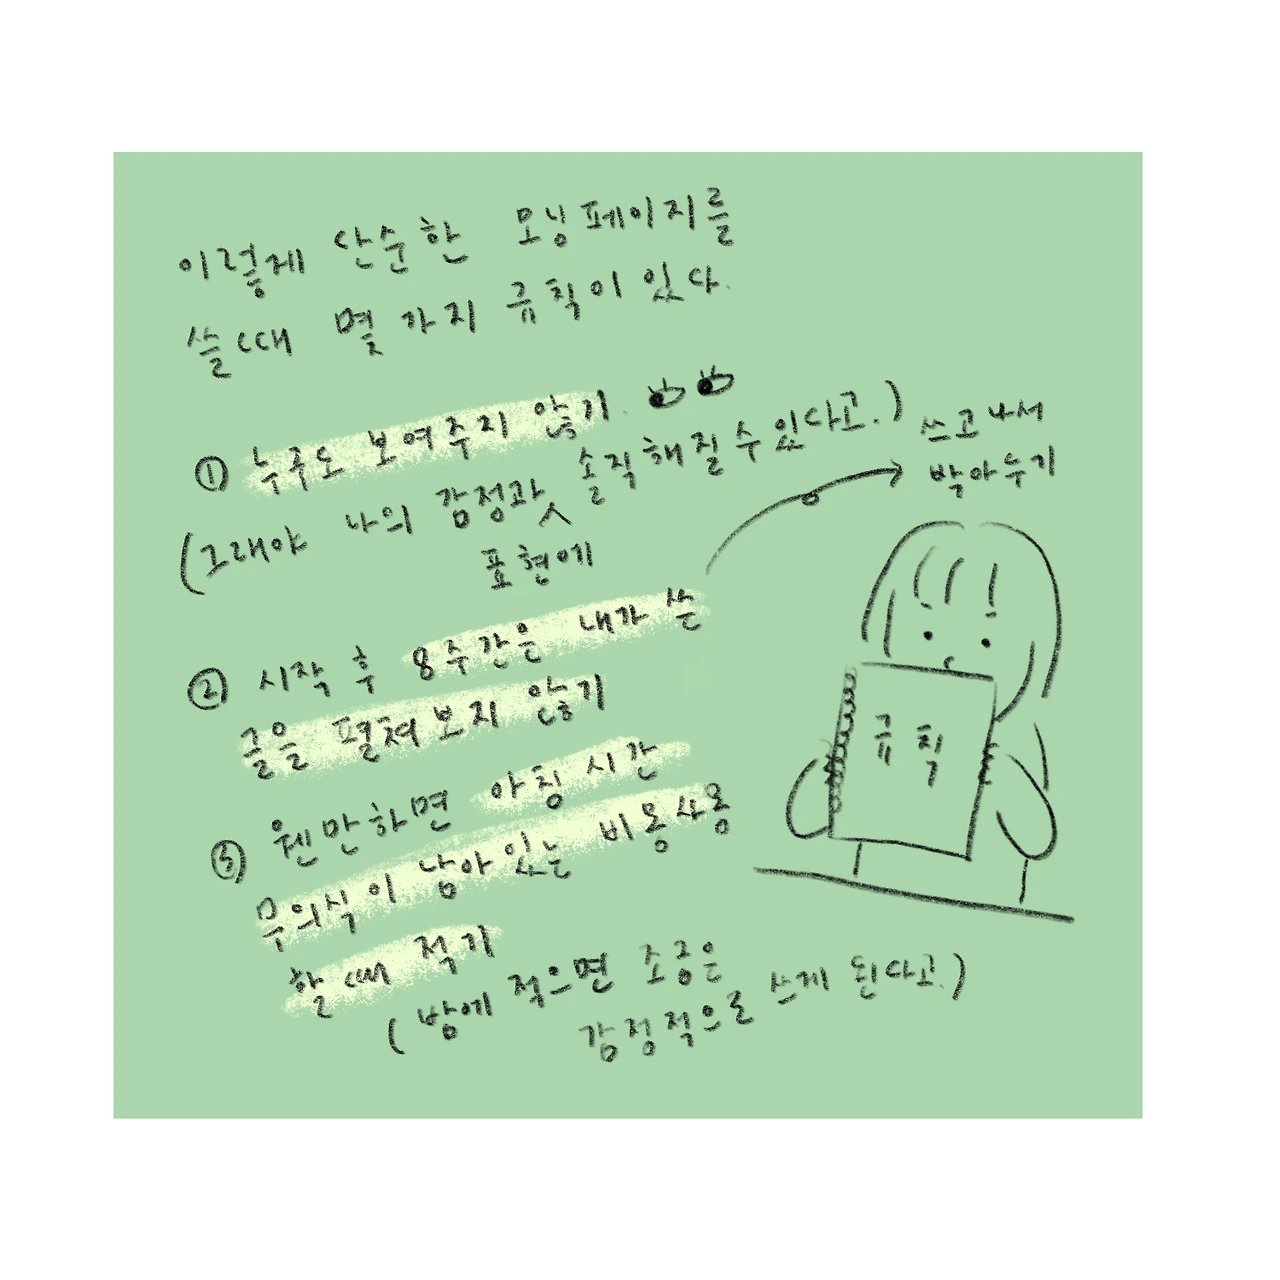 이렇게 단순한 모닝페이지를
쓸 때 몇 가지 규칙이 있다.
① 누구도 보여주지 않기.
(그래야 나의 감정과 표현에 솔직해질 수 있다고.)
② 시작 후 8주간은 내가 쓴
글을 펼쳐 보지 않기
쓰고 나서
박아두기
③ 웬만하면 아침 시간
무의식이 남아 있는 비몽사몽
할 때 적기
(밤에 적으면 조금은
감정적으로 쓰게 된다고.)
규칙